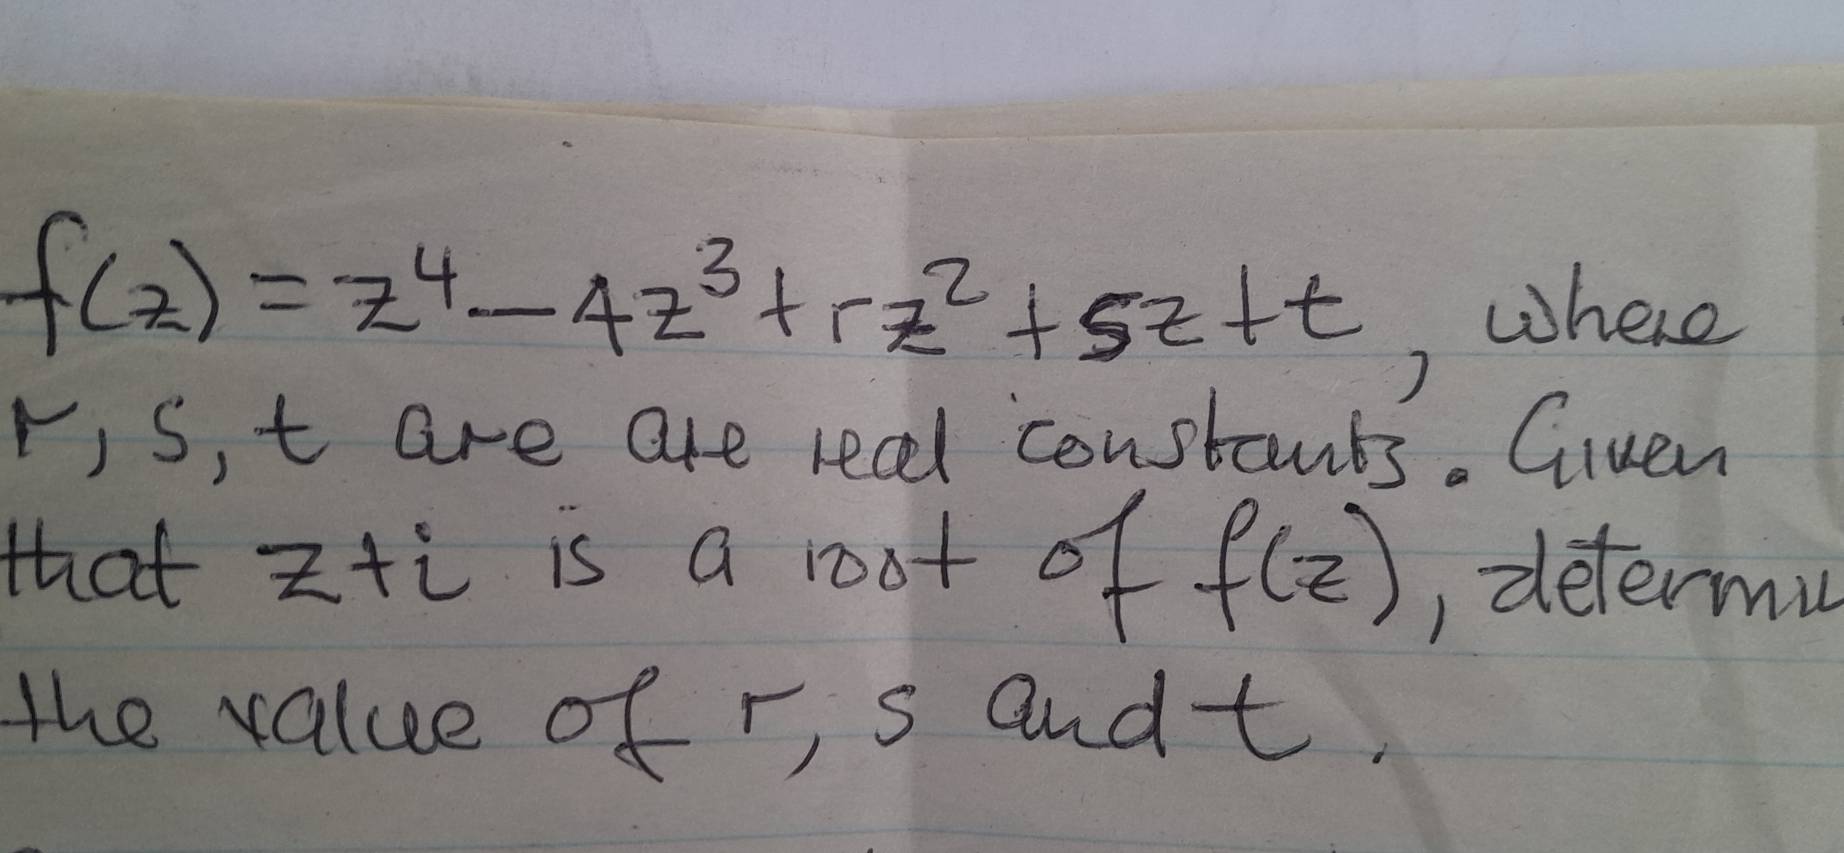 f(z) = z⁴ - 4z³ + rz² + sz + t, where
r, s, t are are real constants. Given
that z+i is a root of f(z), determin
the value of r, s and t.